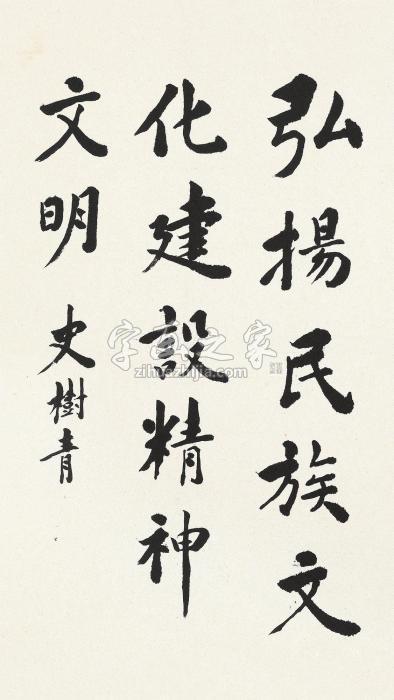 弘揚民族文
化建設精神
文明
史樹青
字画之家
zihuazhijia.com